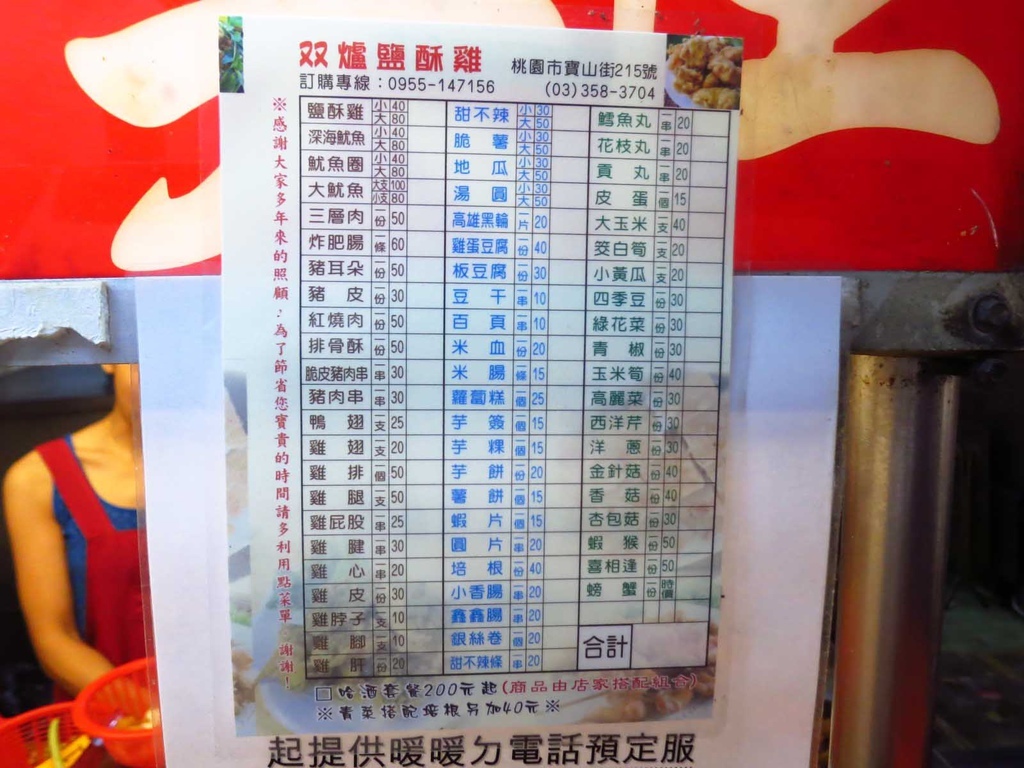 双爐鹽酥雞
桃園市寶山街215號
訂購專線：0955-147156
(03)358-3704
※感謝大家多年來的照顧，為了節省您寶貴的時間請多利用點菜單 謝謝！
鹽酥雞 小 40 大 80
深海魷魚 小 40 大 80
魷魚圈 小 40 大 80
大魷魚 大支 100 小支 80
三層肉 一份 50
炸肥腸 一條 60
豬耳朵 一份 50
豬皮 一份 30
紅燒肉 一份 50
排骨酥 一份 50
脆皮豬肉串 一串 30
豬肉串 一串 30
鴨翅 一支 25
雞翅 一支 20
雞排 一個 50
雞腿 一支 50
雞屁股 一串 25
雞腱 一串 30
雞心 一串 20
雞皮 一份 30
雞脖子 一支 10
雞腳 一支 10
雞肝 一份 20
甜不辣 小 30 大 50
脆薯 小 30 大 50
地瓜 小 30 大 50
湯圓 小 30 大 50
高雄黑輪 一片 20
雞蛋豆腐 一份 40
板豆腐 一份 30
豆干 一串 10
百頁 一串 10
米血 一份 20
米腸 一條 15
蘿蔔糕 一個 25
芋簽 一個 15
芋粿 一個 15
芋餅 一份 20
薯餅 一個 15
蝦片 一個 15
圓片 一串 20
培根 一份 40
小香腸 一串 20
鑫鑫腸 一串 20
銀絲卷 一個 20
甜不辣條 一串 20
鱈魚丸 一串 20
花枝丸 一串 20
貢丸 一串 20
皮蛋 一個 15
大玉米 一支 40
筊白筍 一支 20
小黃瓜 一支 20
四季豆 一份 30
綠花菜 一份 30
青椒 一份 30
玉米筍 一份 40
高麗菜 一份 30
西洋芹 一份 30
洋蔥 一份 30
金針菇 一份 40
香菇 一份 40
杏包菇 一份 30
蝦猴 一份 50
喜相逢 一份 50
螃蟹 一份 時價
合計
□ 啥酒套餐200元起(商品由店家搭配組合)
※青菜搭配培根另加40元※
起提供暖暖ㄉ電話預定服